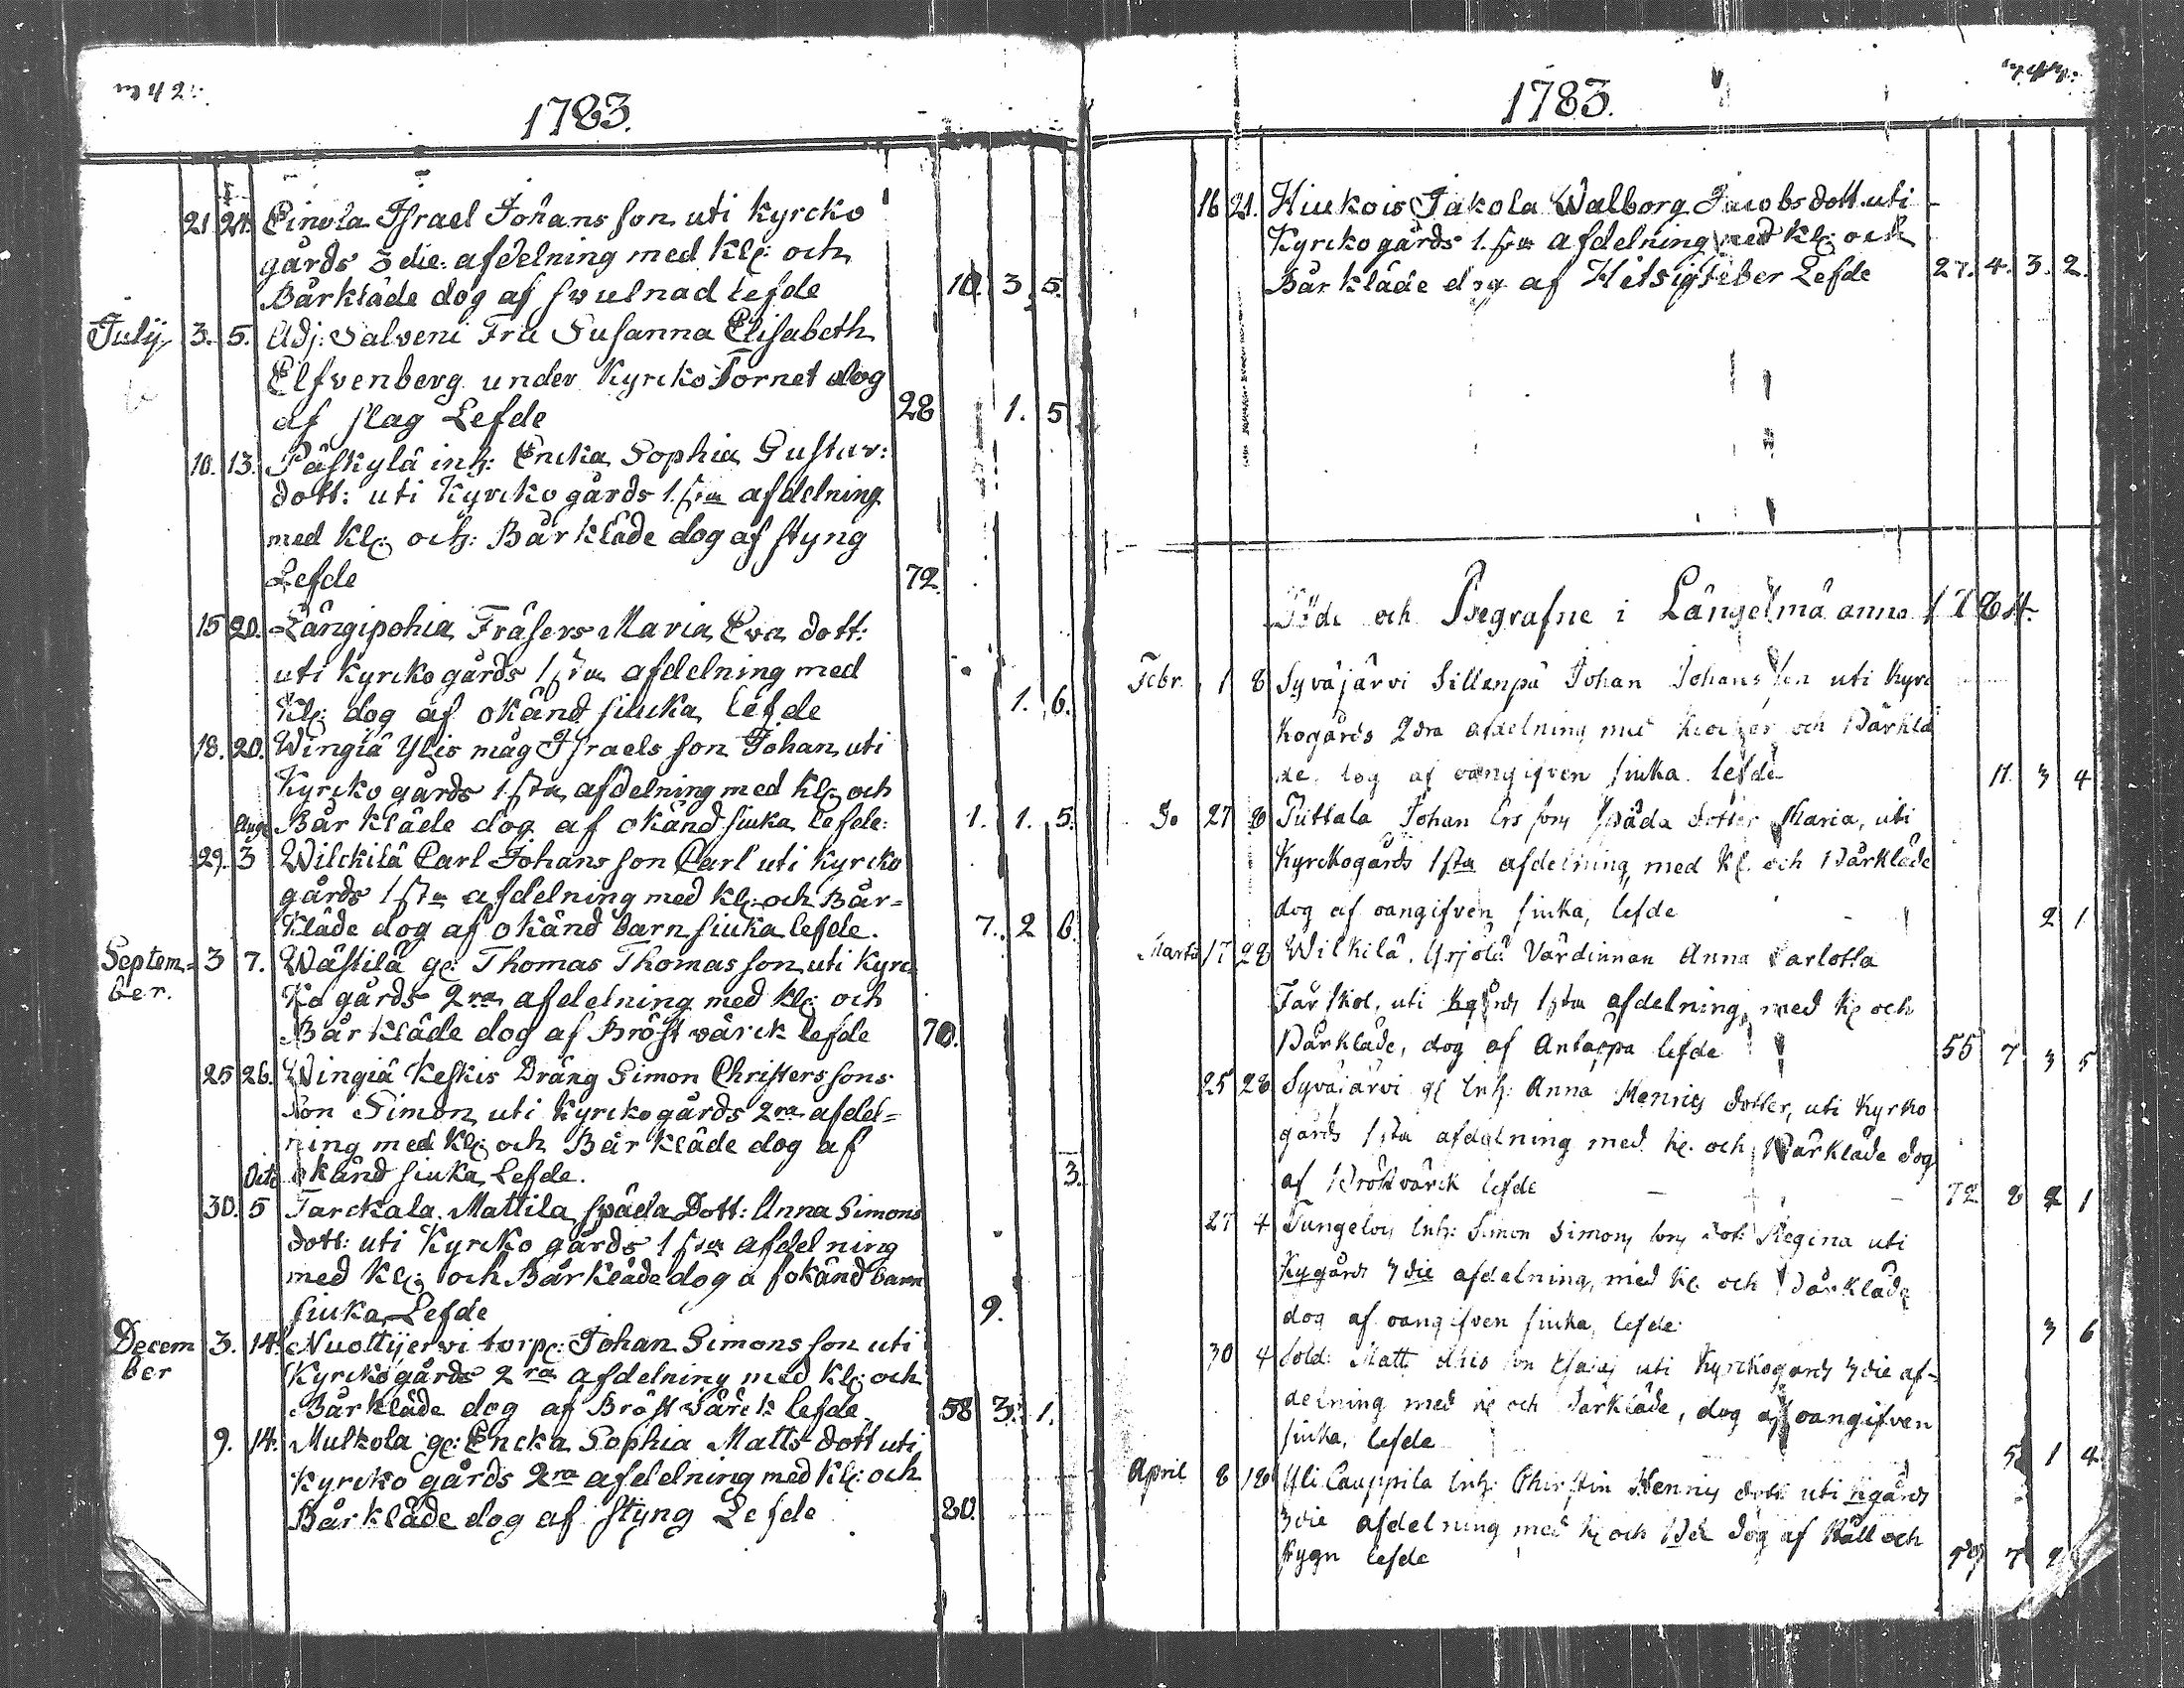 1783.
21. 24. Einola Israel Johansson uti Kyrcko
gårds 3die: afdelning med Kl: och
Bårkläde dog af swulnad lefde 10. 3 5.
Julij 3. 5. Adj: Salveni Fru Susanna Elisabeth
Elfvenberg under Kyrcko Tornet dog
af slag Lefde 28 1. 5
10. 13. Påskylä inh: Encka Sophia Gustav:
dott: uti Kyrcko gårds 1.sta afdelning
med Kl: och: Bårkläde dog af styng
Lefde 72.
15 20. Långipohia Fräsers Maria Eva dott:
uti Kyrcko gårds 1sta afdelning med
Kl: dog af okänd siuka lefde 1. 6.
18. 20. Wingiä Ylis måg Israels son Johan uti
Kyrcko gårds 1.sta afdelning med Kl: och
Aug: Bår kläde dog af okänd siuka lefde: 1. 1. 5.
29. 3 Wilckilä Carl Johans son Carl uti Kyrcko
gårds 1sta afdelning med Kl: och Bår=
kläde dog af okänd barn siuka lefde. 7. 2 6.
Septem= 3 7. Wästilä gl: Thomas Thomas son uti Kyrc
ber. Ko gårds 2ra afdelning med Kl: och
Bår kläde dog af Bröst wärck lefde 70.
25 26. Wingiä Keskis Dräng Simon Christers sons
son Simon uti Kyrcko gårds 2ra afdel=
ning med Kl: och Bår kläde dog af
Octo okänd siuka Lefde. 3.
30. 5 Tarckala Mattila späda Dott: Anna Simons
dott: uti Kyrcko gårds 1sta afdelning
med Kl: och Bårkläde dog af okänd barn
siuka Lefde 9.
Decem 3. 14. Nuottijervi torp: Johan Simons son uti
ber Kyrcko gårds 2ra afdelning med Kl: och
Bårkläde dog af Bröst wärck lefde 58 3. 1.
9. 14. Mulkola gl: Encka Sophia Matts dott uti
Kyrcko gårds 2ra afdelning med Kl: och
Bårkläde dog af styng Lefde 80.
1783.
16 21. Hiukois Jakola Walborg Jacobs dott. uti
Kyrcko gårds 1.sta afdelning med Kl: och
Bår kläde dog af Hetsig feber Lefde 27. 4. 3. 2.
Döde och Begrafne i Längelmä anno 1784.
Febr. 1 8 Syväjärvi Sillanpä Johan Johans son uti Kyrc
kogårds 2dra afdelning med klockor och Bårklä
de. dog af oangifven siuka. lefde 11. 3 4
Do 27 8 Tuttala Johan Ers sons späda dotter Maria, uti
Kyrckogårds 1sta afdelning, med Kl. och Bårkläde
dog af oangifven siuka, lefde 2 1
Marti 17 28 Wilkilä, Yrjölä Värdinnan Anna Carlotta
uti Kgårds 1sta afdelning, med Kl och
Bårkläde, dog af lefde 55 7 3 5
25 28 Syväjärvi gl Inh: Anna Henrics dotter, uti Kyrko
gårds 1sta afdelning med Kl. och Bårkläde dog
af Bröstvärck lefde 72 8 2 1
27 4 Inh: Simon Simons sons dot: Regina uti
Kygårds 3die afdelning, med Kl. och Bårkläde
dog af oangifven siuka, lefde 3 6
30 4 Sold: Matts son Esaias uti Kyrckogårds 3die af-
delning med Kl och Bårkläde, dog af oangifven
siuka, lefde 5 1 4
April 8 18 Yli Cauppila Inh: Christin Henrics dott uti Kgårds
3die afdelning med Kl och Bkl dog af Håll och
stygn lefde 7